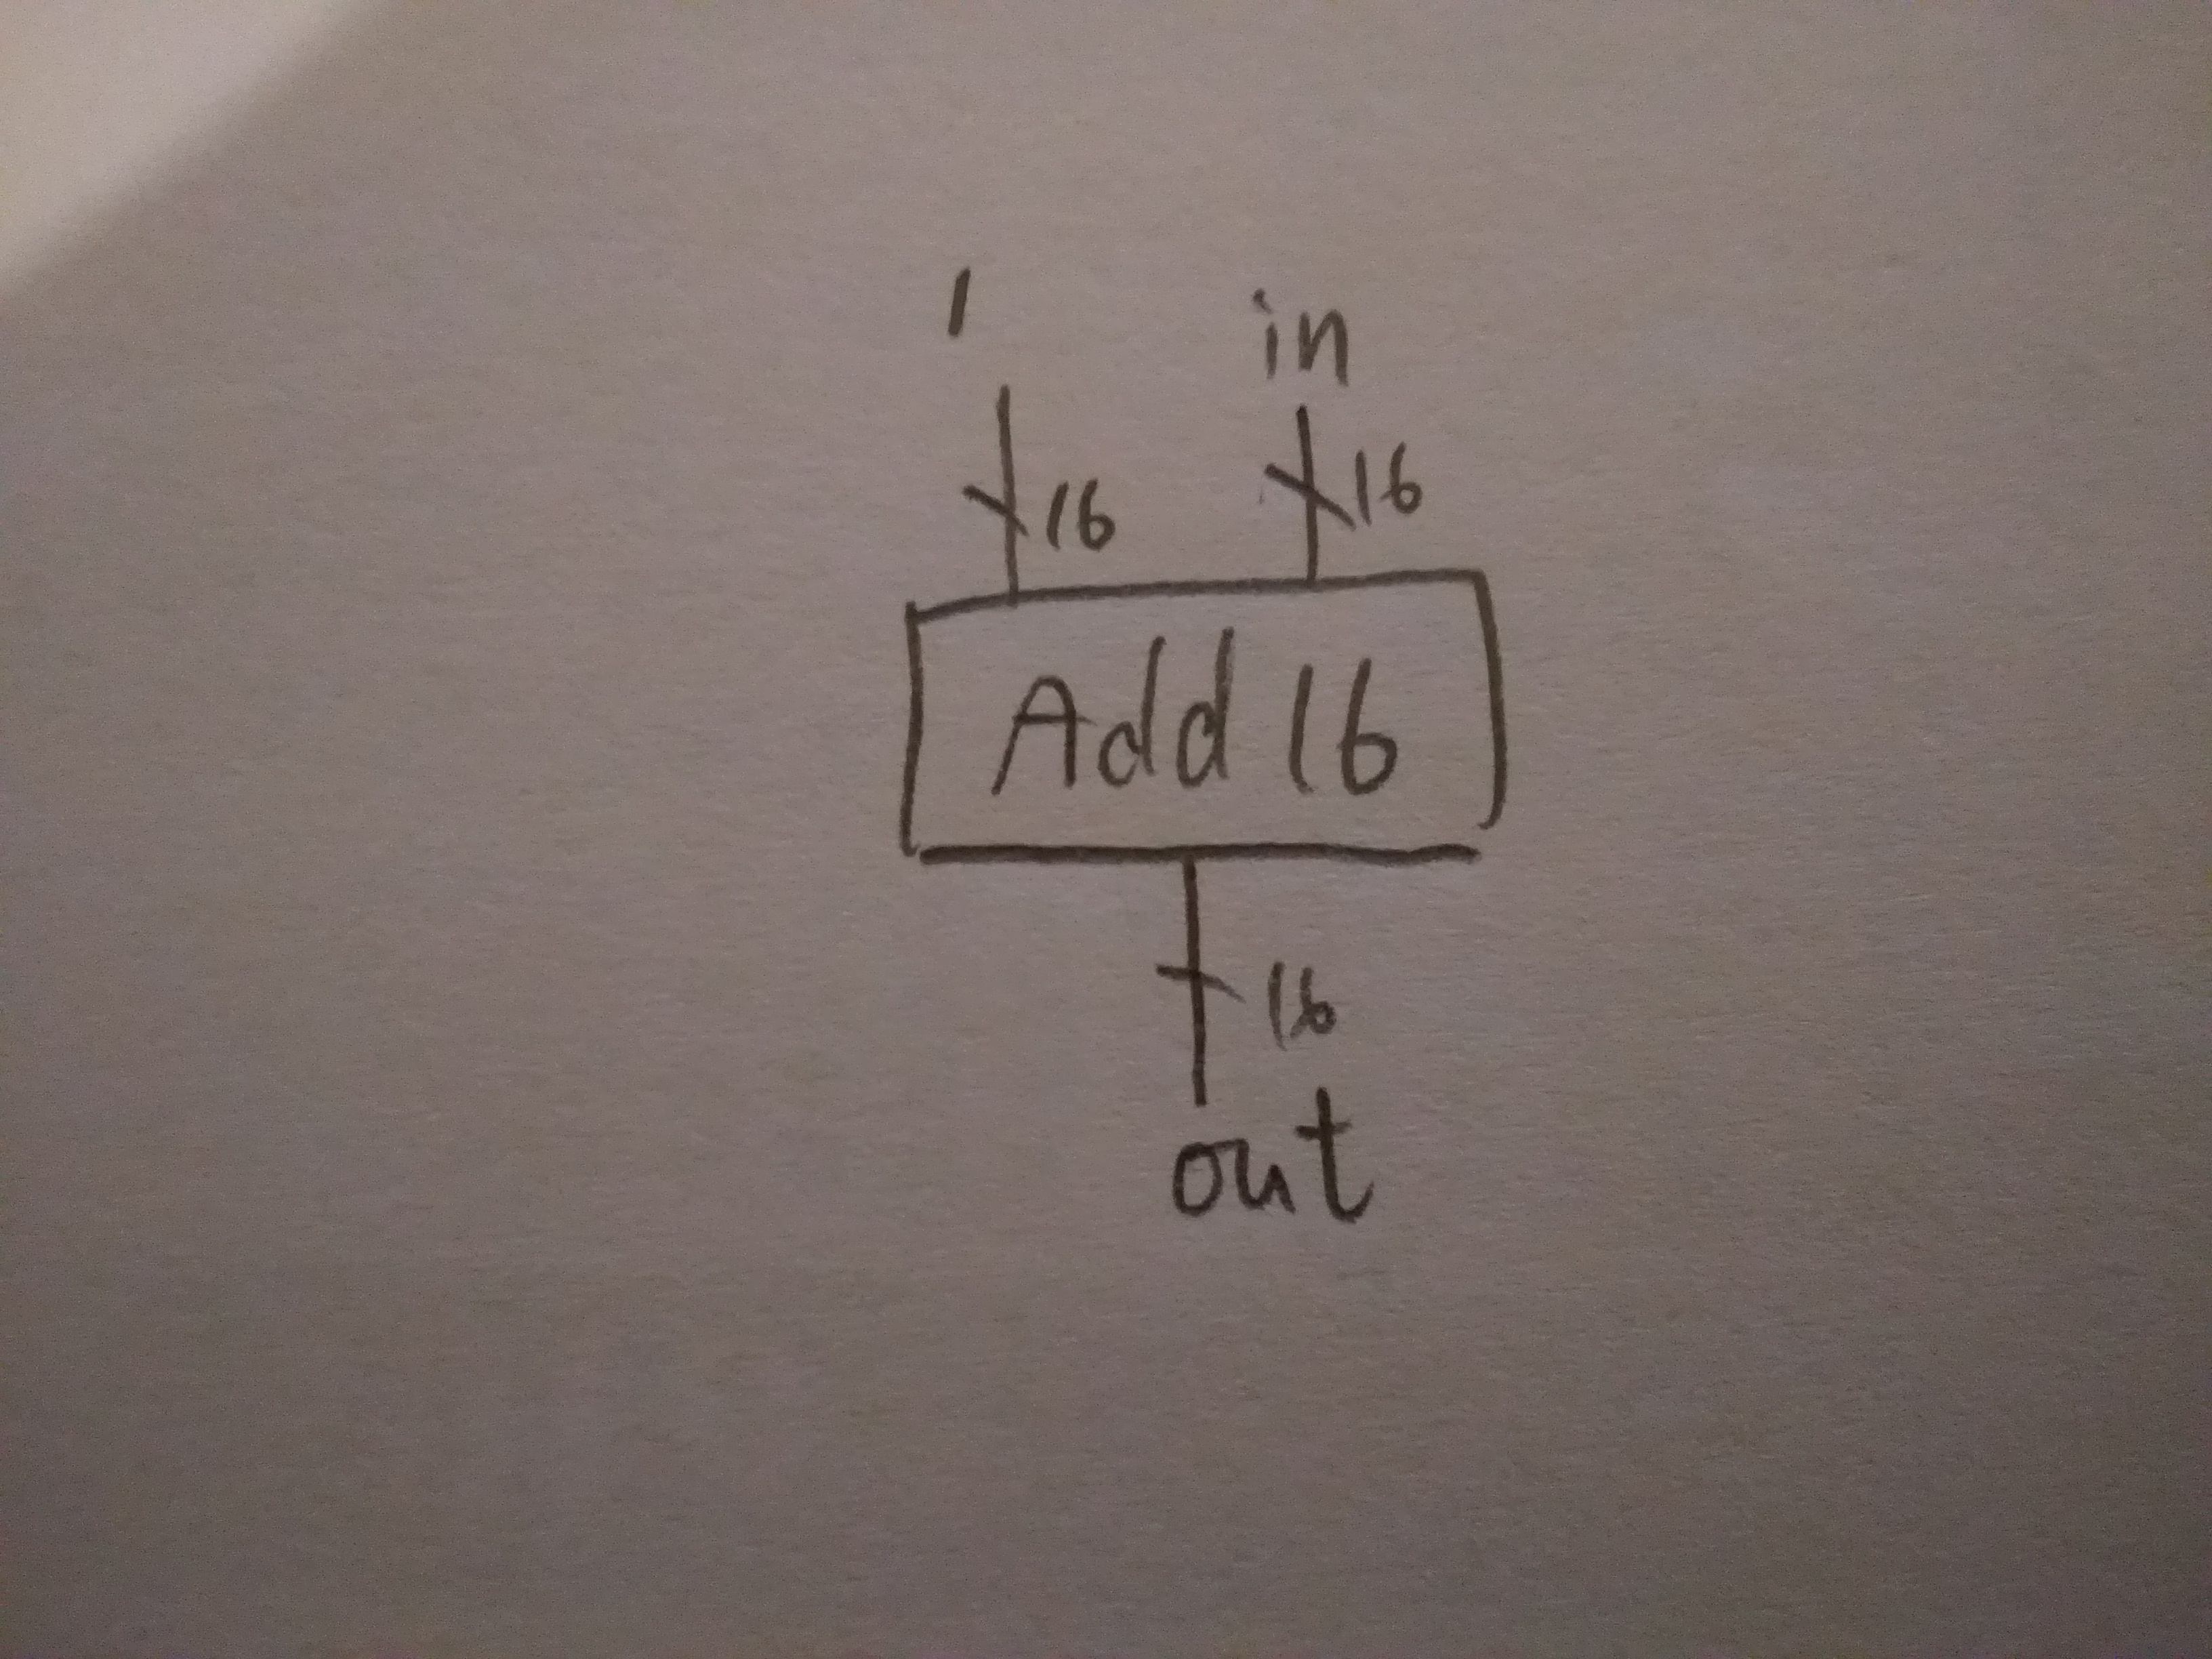 1 in
16 16
Add 16
16
out